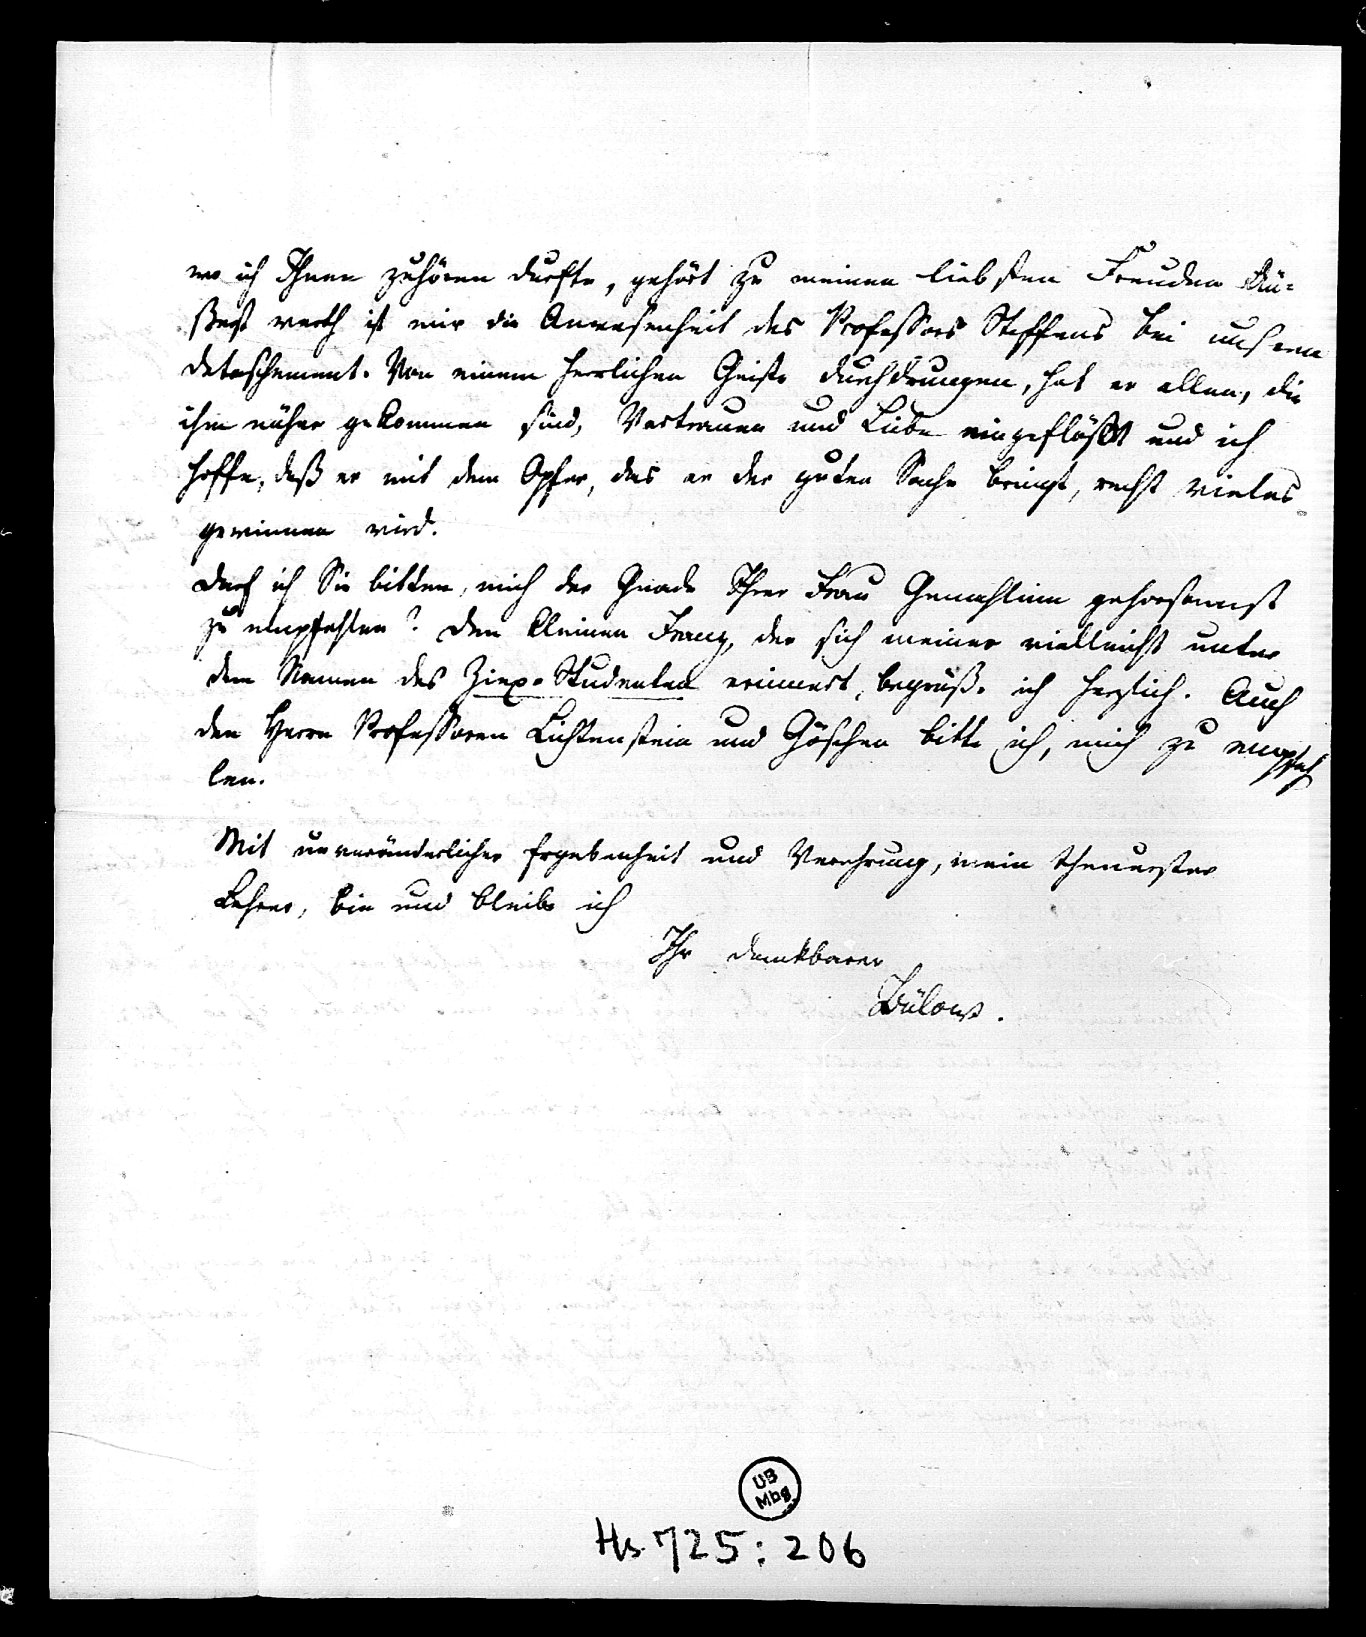 wo ich Ihnen zuhören durfte, gehört zu meinen liebsten Freuden. Äu-
ßerst werth ist mir die Anwesenheit des Professors Steffens bei unserem
Detaschement. Von einem herrlichen Geiste durchdrungen, hat er allen, die
ihm näher gekommen sind, Vertrauen und Liebe eingeflößt und ich
hoffe, daß er mit dem Opfer, das er der guten Sache bringt, recht vieles
gewinnen wird.
Darf ich Sie bitten, mich der Gnade Ihrer Frau Gemahlinn gehorsamst
zu empfehlen? Den kleinen Franz, der sich meiner vielleicht unter
dem Namen des Ziep-Studenten erinnert, begrüße ich herzlich. Auch
den Herrn Professoren Lichtenstein und Göschen bitte ich, mich zu empfeh
len.
Mit unveränderlicher Ergebenheit und Verehrung, mein theuerster
Lehrer, bin und bleibe ich
Ihr dankbarer
Bülow.
UB
Mbg
Hs. 725: 206